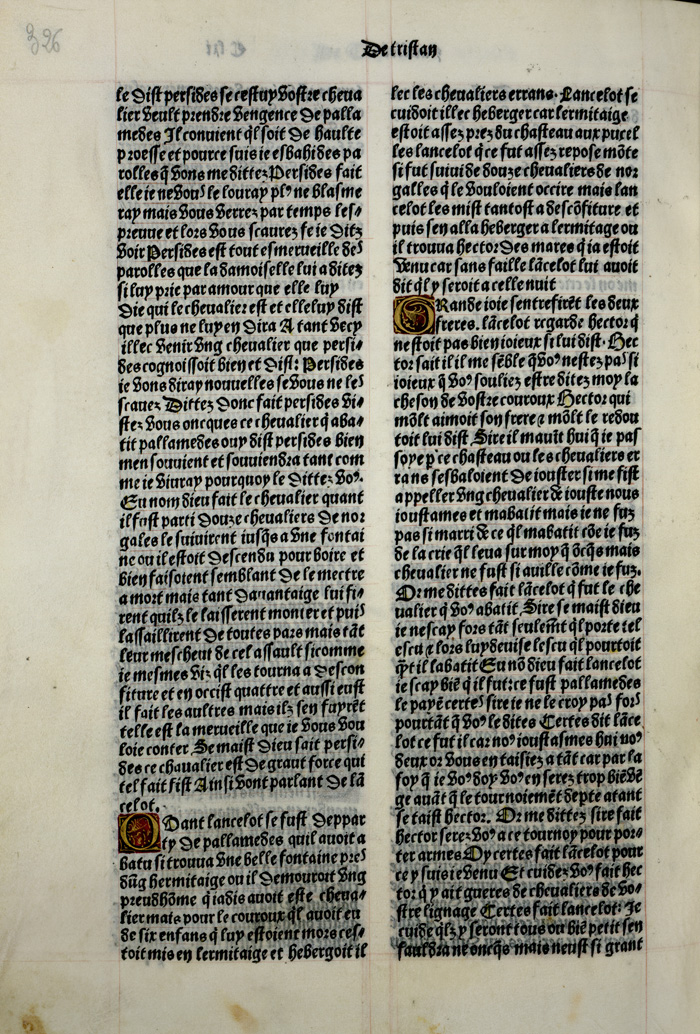 326
De tristan
le dist persides se cestuy vostre cheua
lier veult prendre vengence de palla
medes Il conuient ql soit de haulte
proesse et pource suis ie esbahi des pa
rolles q̄ vous me dittez Persides fait
elle ie ne voꝰ le louray plꝰ ne blasme
ray mais vous verrez par temps les⸗
preuue et lors vous scaurez se ie ditz
voir Persides est tout esmerueille deˢ
parolles que la damoiselle lui a ditez
si luy prie par amour que elle luy
die qui le cheualier est et elle luy dist
que plus ne luy en dira A tant vecy
illec venir vng cheualier que persi⸗
des cognoissoit bien et dist: Persides
ie vous diray nouuelles se vous ne leˢ
scauez Dittez donc fait persides vi⸗
stez vous oncques ce cheualier q̄ aba⸗
tit pallamedes ouy dist persides bien
men souuient et souuiendra tant com
me ie viuray pourquoy le dittez voꝰ.
En nom dieu fait le cheualier quant
il fust parti douze cheualiers de nor
gales le suiuirent iusq̄s a vne fontai
ne ou il estoit descendu pour boire et
bien faisoient semblant de le mectre
a mort mais tant dauantaige lui fi⸗
rent quilz le laisserent monter et puiˢ
lassaillirent de toutes pars mais tāt
leur mescheut de cel assault si comme
ie mesmes viz ql les tourna a descon
fiture et en occist quattre et aussi eust
il fait les aultres mais ilz sen fuyrēt
telle est la merueille que ie vous vou
loie conter. Se maist dieu sait persi⸗
des ce chaualier est de grant force qui
tel fait fist Ainsi vont parlant de lā
celot.
Quant lancelot se fust deppar
ty de pallamedes quil auoit a
batu si trouua vne belle fontaine preˢ
dūg hermitaige ou il demouroit vng
preudhōme q̄ iadis auoit este cheua⸗
lier mais pour le couroux ql auoit eu
de six enfans q̄ luy estoient mors ces⸗
toit mis en lermitaige et hebergoit il
lec les cheualiers errans. Lancelot se
cuidoit illec heberger car lermitaige
estoit assez prez du chasteau aux pucel
les lancelot q̄ ce fut assez repose mōte
si fut suiui de douze cheualiers de nor
galles q̄ le vouloient occire mais lan
celot les mist tantost a descōfiture et
puis sen alla heberger a lermitage ou
il trouua hector des mares q̄ ia estoit
venu car sans faille lācelot lui auoit
dit ql y seroit a celle nuit
Grande ioie sentrefirēt les deux
freres. lācelot regarde hector q̄
ne stoit pas bien ioieux si lui dist. Hec
tor fait il il me sēble q̄ voꝰ nestez paˢ si
ioieux q̄ voꝰ souliez estre ditez moy la
cheson de vostre couroux Hector qui
mōlt aimoit son frere ⁊ mōlt le redou
toit lui dist. Sire il mauīt hui q̄ ie pas
soye p̄ ce chasteau ou les cheualiers er
rans sesbaloient de iouster si me fist
appeller vng cheualier de iouste nous
ioustames et mabatit mais ie ne fuz
pas si marri de ce ql mabatit cōe ie fuz
de la crie ql leua sur moy q̄ ōcq̄s mais
cheualier ne fust si auille cōme ie fuz.
Or me dittes fait lācelot q̄ fut le che
ualier q̄ voꝰ abatit. Sire se maist dieu
ie ne scay fors tāt seulemt̄ ql porte tel
escu ⁊ lors luy deuise lescu ql pourtoit
q̄t il labatit En nō dieu fait lancelot
ie scay biē q̄ il fut: ce fust pallamedes
le payē certeˢ sire ie ne le croy paˢ forˢ
pourtāt q̄ voꝰ le dites Certes dit lāce
lot ce fut il car noꝰ ioustasmes hui noꝰ
deux or vous en taisiez a tāt car par la
foy q̄ ie voꝰ doy voꝰ en serez trop biē vē
ge auāt q̄ le tournoiemēt depte atant
se taist hector. Or me dittez sire fait
hector serez voꝰ a ce tournoy pour por⸗
ter armes Oy certes fait lācelot pour
ce y suis ie venu Et cuidez voꝰ fait hec
tor q̄ y ait gueres de cheualiers de vo⸗
stre lignage Certes fait lancelot: Je
cuide qlz y seront tous ou biē petit sen
fauldra ne oncq̄s mais neust si grant